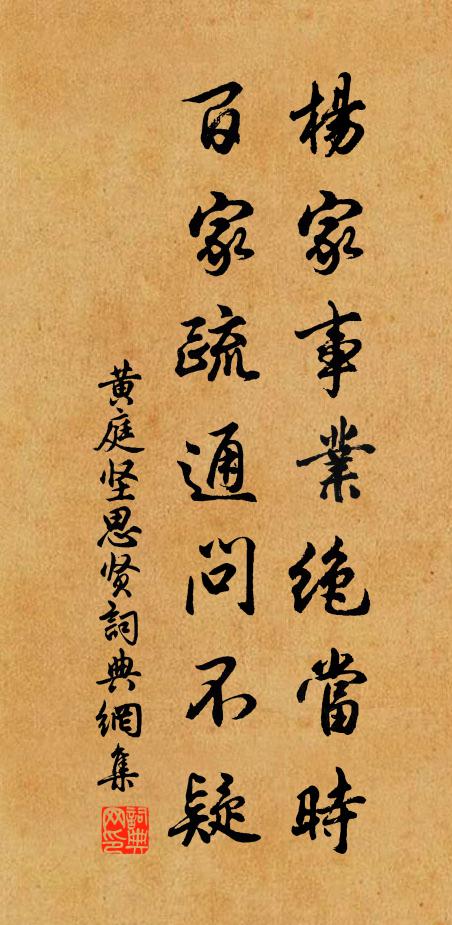 楊家事業絶當時
百家疏通問不疑
黄庭坚思贤詞典網集
詞典网印